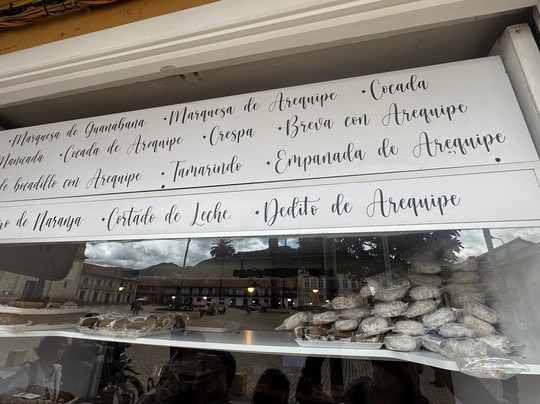 •Marquesa de Guanábana •Marquesa de Arequipe •Cocada
Manicada •Cocada de Arequipe •Crespa •Breva con Arequipe
de bocadillo con Arequipe •Tamarindo •Empanada de Arequipe
de Naranja •Cortado de Leche •Dedito de Arequipe